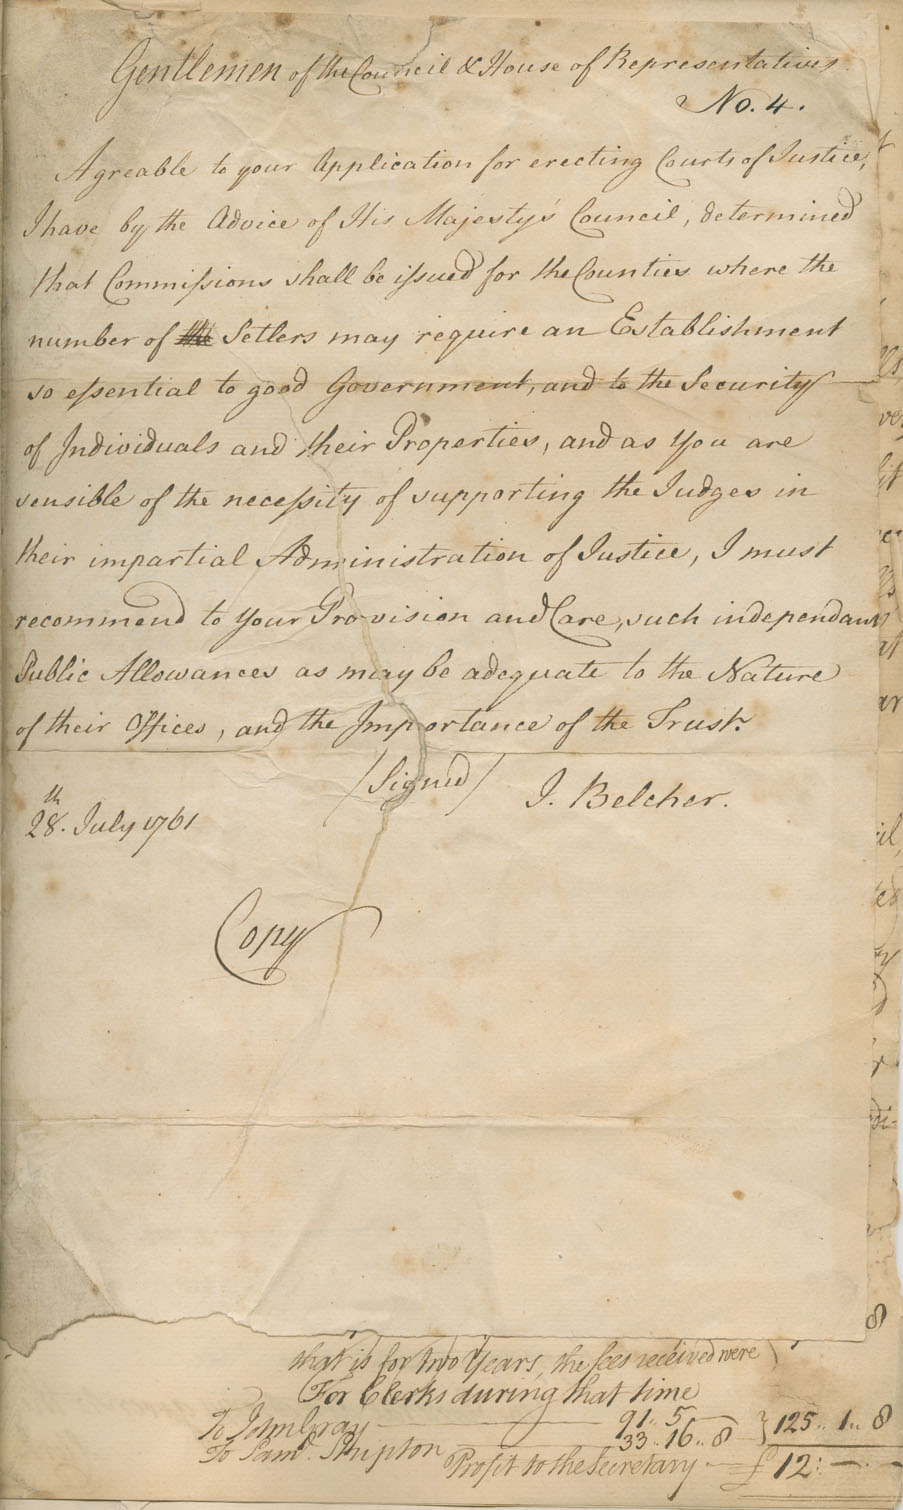 Gentlemen of the Council & House of Representatives
No. 4.
Agreable to your Application for erecting Courts of Justice,
I have by the Advice of His Majesty's Council, determined
that Commissions shall be issued for the Counties where the
number of the Setlers may require an Establishment
so essential to good Government, and to the Security
of Individuals and their Properties, and as You are
sensible of the necessity of supporting the Judges in
their impartial Administration of Justice, I must
recommend to Your Provision and Care, such independant
Public Allowances as may be adequate to the Nature
of their Offices, and the Importance of the Trust.
/Signed/ J. Belcher.
28.th July 1761
Copy
that is for two Years, the fees received were
For Clerks during that time
To John Gray 91.. 5
To Sam.l Shipton 33.. 16.. 8 } 125.. 1.. 8
Profit to the Secretary £ 12: — . —